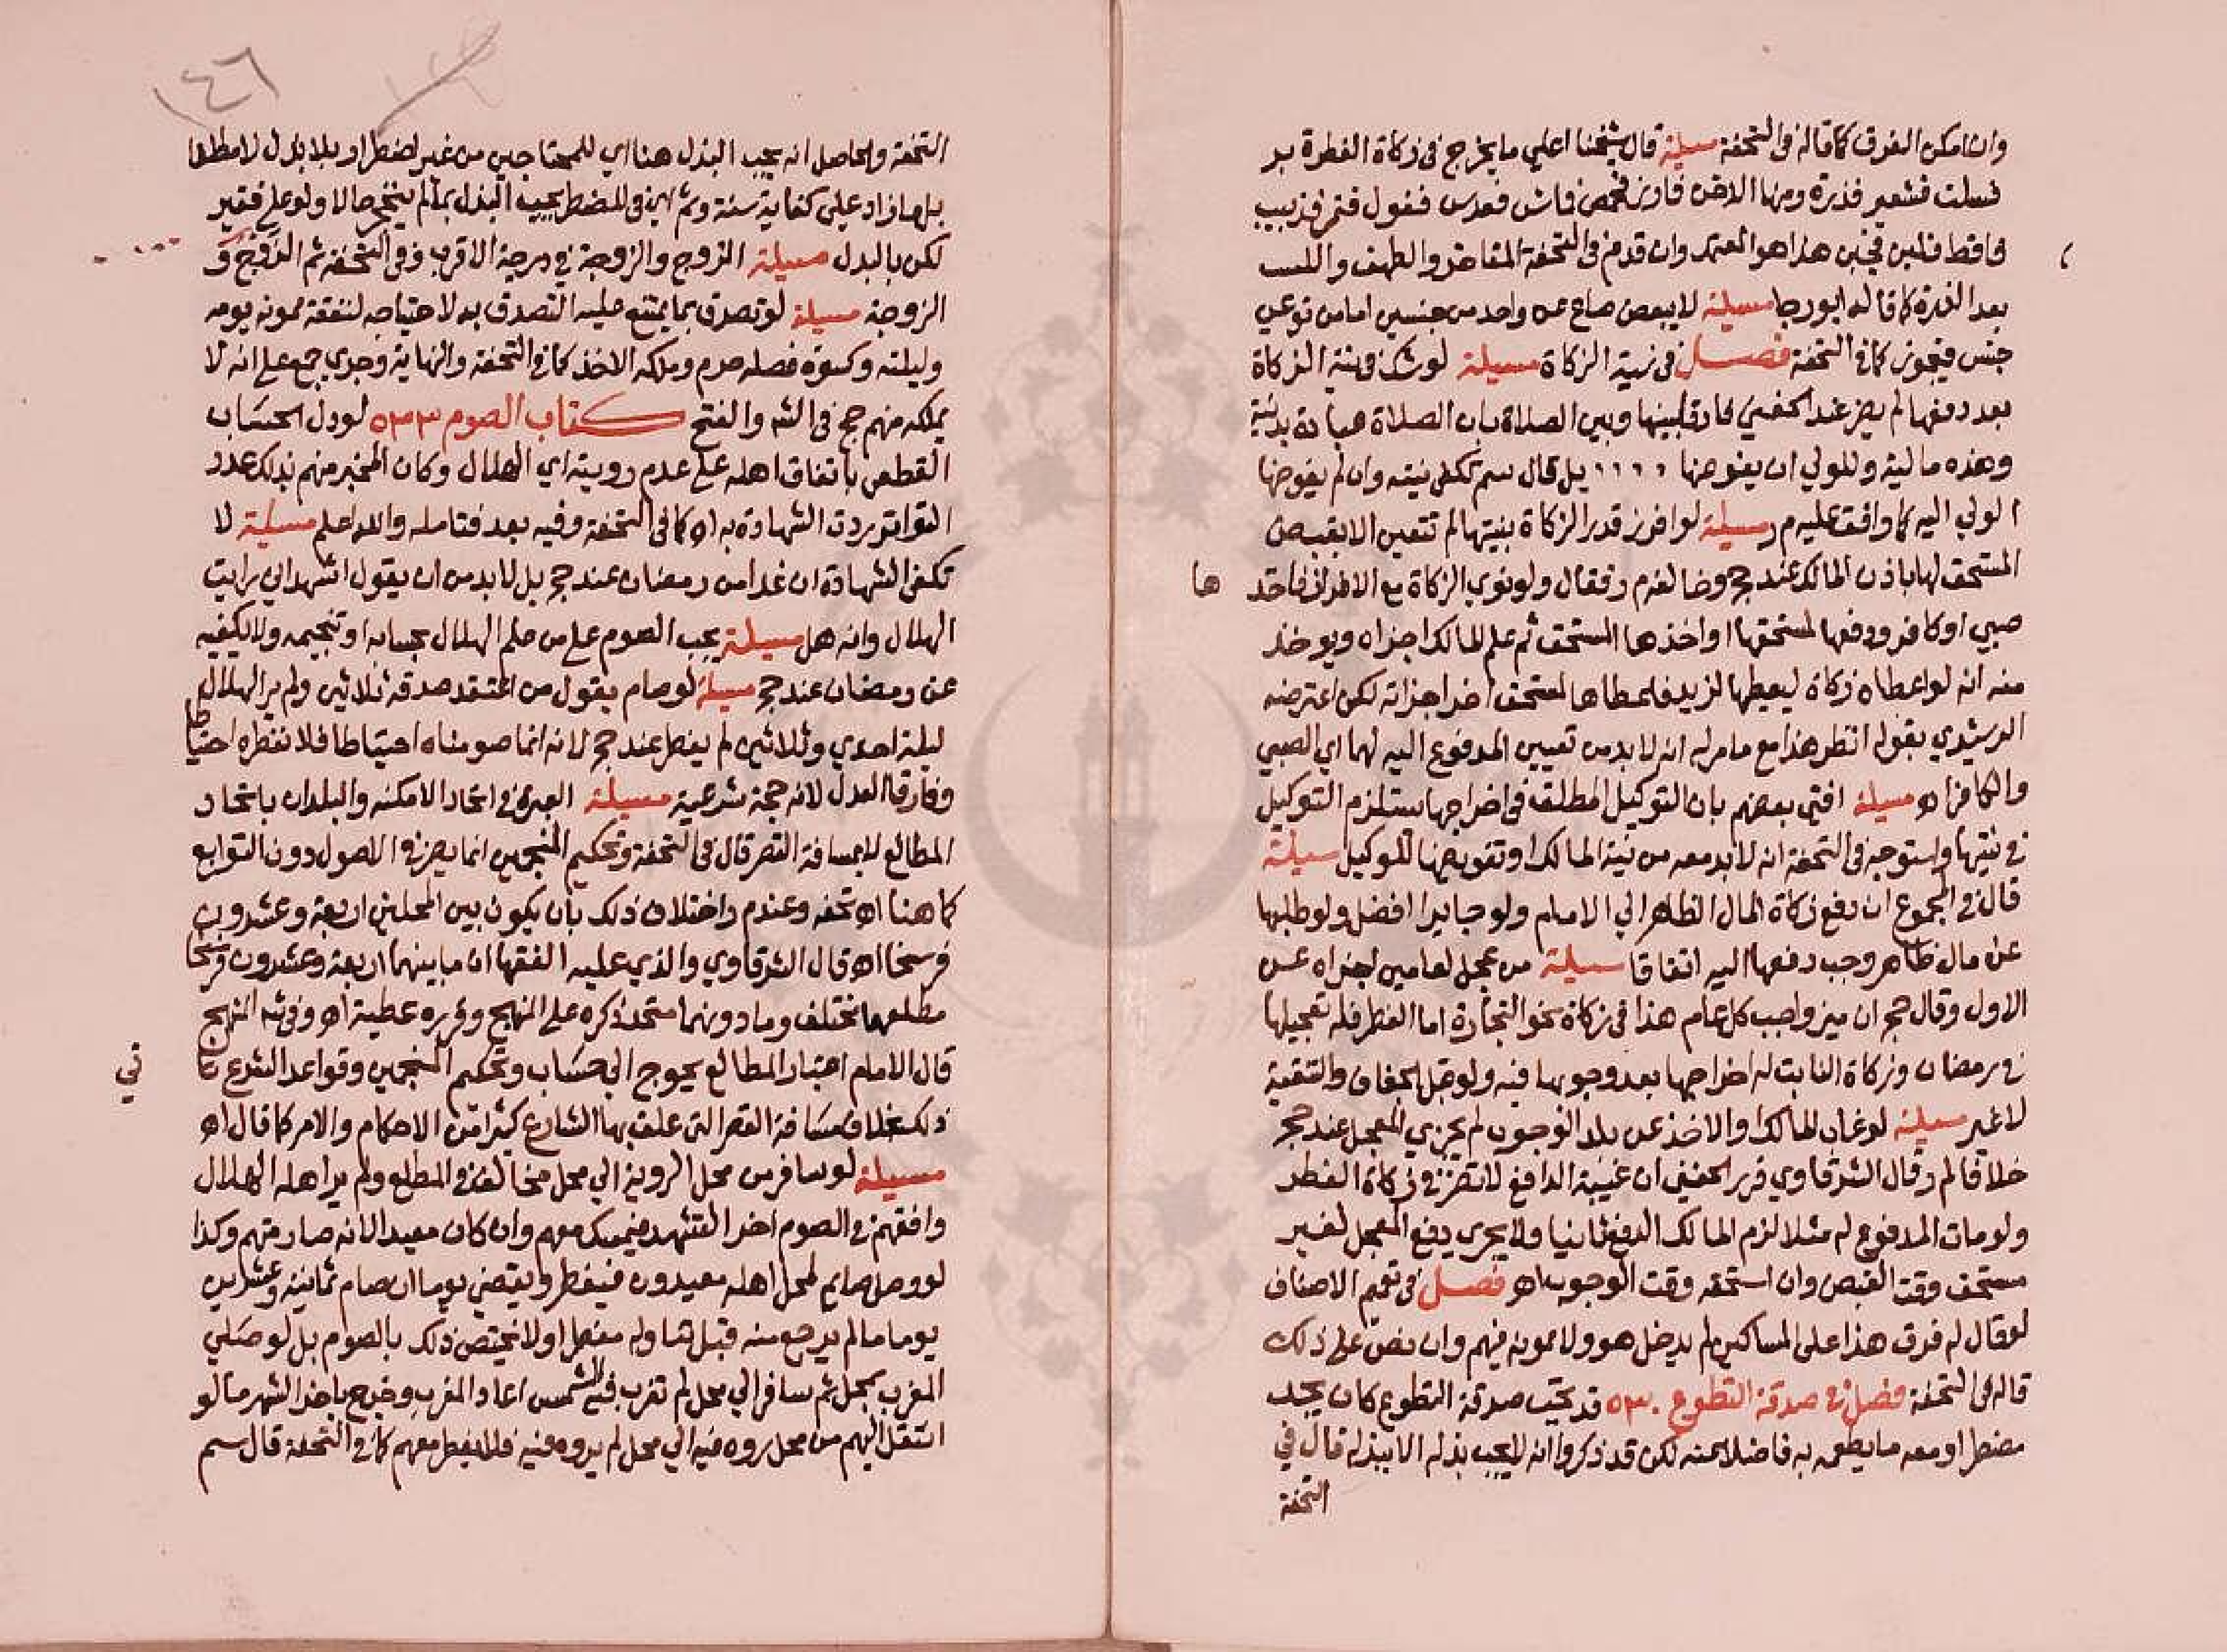 وان امكن الفرق كما قاله في التحفة مسيلة قال شيخنا اعلي ما يخرج في زكاة الفطرة بر
فسلت فشعير فذرة ومنها الدخن فارز فحمص فماش فعدس ففول فتمر فزبيب
فاقط فلبن فجبن هذا هو المعتمد وان قدم في التحفة
بعد الذرة كما قاله مسيلة لا يبعض صاع عن واحد من جنسين اما من نوعي
جنس فيجوز كما في التحفة فصل في نية الزكاة مسيلة لو شك في نية الزكاة
بعد دفعها لم يضر عند الحفني فارقا بينها وبين الصلاة بان الصلاة عبادة بدنية
وهذه مالية وللولي ان يفوضها بل قال سم تكفي نيته وان لم يفوضها
الولي اليه كما وافق عليه م ر مسيلة لو افرز قدر الزكاة بنيتها لم تتعين الا بقبض
المستحق لها باذن المالك عند حج وخالفه م ر فقال ولو نوي الزكاة مع الافراز فاخذها
صبي او كافر ودفعها لمستحقها او اخذها المستحق ثم علم المالك اجزاه ويوخذ
منه انه لو اعطاه زكاة ليعطيها لزيد فاعطاها لمستحق اخر اجزاته لكن اعترضه
الرشيدي بقوله انظر هذا مع ما مر له انه لا بد من تعيين المدفوع اليه لهما اي الصبي
والكافر اه مسيلة افتي بعضهم بان التوكيل المطلق في اخراجها يستلزم التوكيل
في نيتها واستوجه في التحفة انه لا بد معه من نية المالك او تفويضها للوكيل مسيلة
قال في المجموع ان دفع زكاة المال الظاهر الي الامام ولو جايرا افضل ولو طلبها
عن مال ظاهر وجب دفعها اليه اتفاقا مسيلة من عجل لعامين اجزاه عن
الاول وقال حج ان ميز واجب كل عام هذا في زكاة نحو التجارة اما الفطر فله تعجيلها
في رمضان وزكاة النابت له اخراجها بعد وجوبها فيه ولو قبل الجفاف والتنقية
لا غير مسيلة لو غاب المالك او الاخذ عن بلد الوجوب لم يجزي المعجل عند حج
خلافا لم ر وقال الشرقاوي قرر الحفني ان غيبة الدافع لا تضر في زكاة الفطر
ولو مات المدفوع له مثلا لزم المالك الدفع ثانيا ولا يجزي دفع المعجل لغير
مستحق وقت القبض وان استحقه وقت الوجوب اه فصل في تعميم الاصناف
لو قال له فرق هذا على المساكين لم يدخل هو ولا ممونه فيهم وان نص على ذلك
قاله في التحفة فصل في صدقة التطوع ٥٣٠ قد تجب صدقة التطوع كان يجد
مضطرا ومعه ما يطعمه به فاضلا عنه لكن قد ذكروا انه لا يجب بذله الا ببدله قال في
التحفة
١٤٦
التحفة والحاصل انه يجب البذل هنا اي للمحتاجين من غير اضطرار بلا بدل لا مطلقا
بل مما زاد علي كفاية سنة وثم اي في المضطر يجب البذل بما لم يحتجه حالا ولو على فقير
لكن بالبدل مسيلة الزوج والزوجة في درجة الاقرب وفي التحفة ثم الزوج و
الزوجة مسيلة لو تصدق بما يمتنع عليه التصدق به لاحتياجه لنفقة ممونه يومه
وليلته وكسوة فصله حرم وملكه الاخذ كما في التحفة والنهاية وجري جمع على انه لا
يملكه منهم حج في الشـ والفتح كتاب الصوم ٥٣٣ لو دل الحساب
القطعي باتفاق اهله على عدم رويته اي الهلال وكان المخبر منهم بذلك عدد
التواتر ردت الشهادة به اه كما في التحفة وفيه بعد فتامله والله اعلم مسيلة لا
تكفي الشهادة ان غدا من رمضان عند حج بل لا بد من ان يقول اشهد اني رايت
الهلال وانه هل مسيلة يجب الصوم على من علم الهلال بحسابه او تنجيمه ولا يكفيه
عن رمضان عند حج مسيلة لو صام بقول من اعتقد صدقه ثلاثين ولم ير الهلال
ليلة احدي وثلاثين لم يفطر عند حج لانه انما صومناه احتياطا فلا نفطره احتياطا
وفارق العدل لانه حجة شرعية مسيلة العبرة في اتحاد الامكنه والبلدان باتحاد
المطالع لا بمسافة القصر قال في التحفة وتحكيم المنجمين انما يضر في الاصول دون التوابع
كما هنا اه تحفه وعند م ر اختلاف ذلك بان يكون بين المحلين اربعة وعشرون
فرسخا اه قال الشرقاوي والذي عليه الفقها ان ما بينهما اربعة وعشرون فرسخا
مطلعهما مختلف وما دونهما متحد ذكره على المنهج وقرره عطية اه وفي شـ المنهج
قال الامام اعتبار المطالع يحوج الي حساب وتحكيم المنجمين وقواعد الشرع تابي
ذلك بخلاف مسافة القصر التي علق بها الشارع كثيرا من الاحكام والامر كما قال اه
مسيلة لو سافر من محل الروية الي محل مخالفه في المطلع ولم ير اهله الهلال
وافقهم في الصوم اخر الشهر فيمسك معهم وان كان معيدا لانه صار منهم وكذا
لو وصل صايم لمحل اهله معيدون فيفطر ويقضي يوما ان صام ثمانية وعشرين
يوما ما لم يرجع منه قبل تناوله مفطرا ولا يختص ذلك بالصوم بل لو صلي
المغرب بمحل ثم سافر الي محل لم تغرب فيه الشمس اعاد المغرب وخرج باخر الشهر ما لو
انتقل اليهم من محل روه فيه الي محل لم يروه فيه فلا يفطر معهم كما في التحفة قال سم